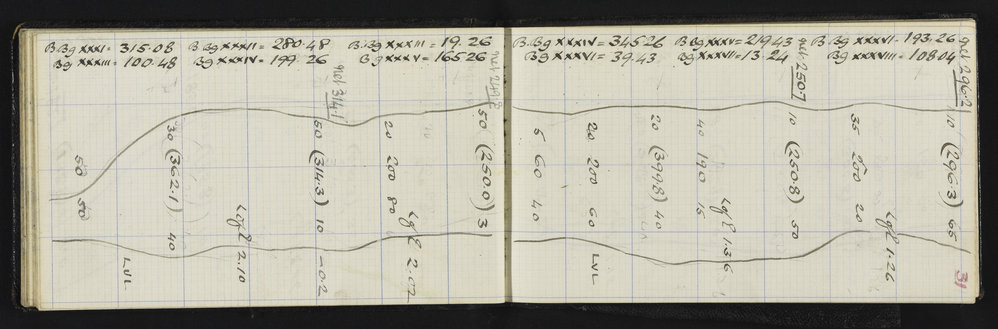 B.Bg XXXI = 315.08 B.Bg XXXII = 280.48 B.Bg XXXIII = 19.26
Bg XXXIII = 100.48 Bg XXXIV = 199.26 Bg XXXV = 165 26
net 314.1
50
50
30 (362.1) 40
LVL
Lgfl 2.10
50 (314.3) 10 -0.2
20 200 80
Lgfl 2.02
50 (250.0) 3
B.Bg XXXIV = 345 26 B.Bg XXXV = 219 43 B.Bg XXXVI = 193.26
Bg XXXVI = 39.43 Bg XXXVII = 13.24 Bg XXXVIII = 108 04
net 250.7
net 296.2
5 60 40
20 200 60
LVL
20 (399.8) 40
40 190 15
Lgfl 1.36
10 (250.8) 50
35 200 20
Lgfl 1.26
10 (296.3) 65
31